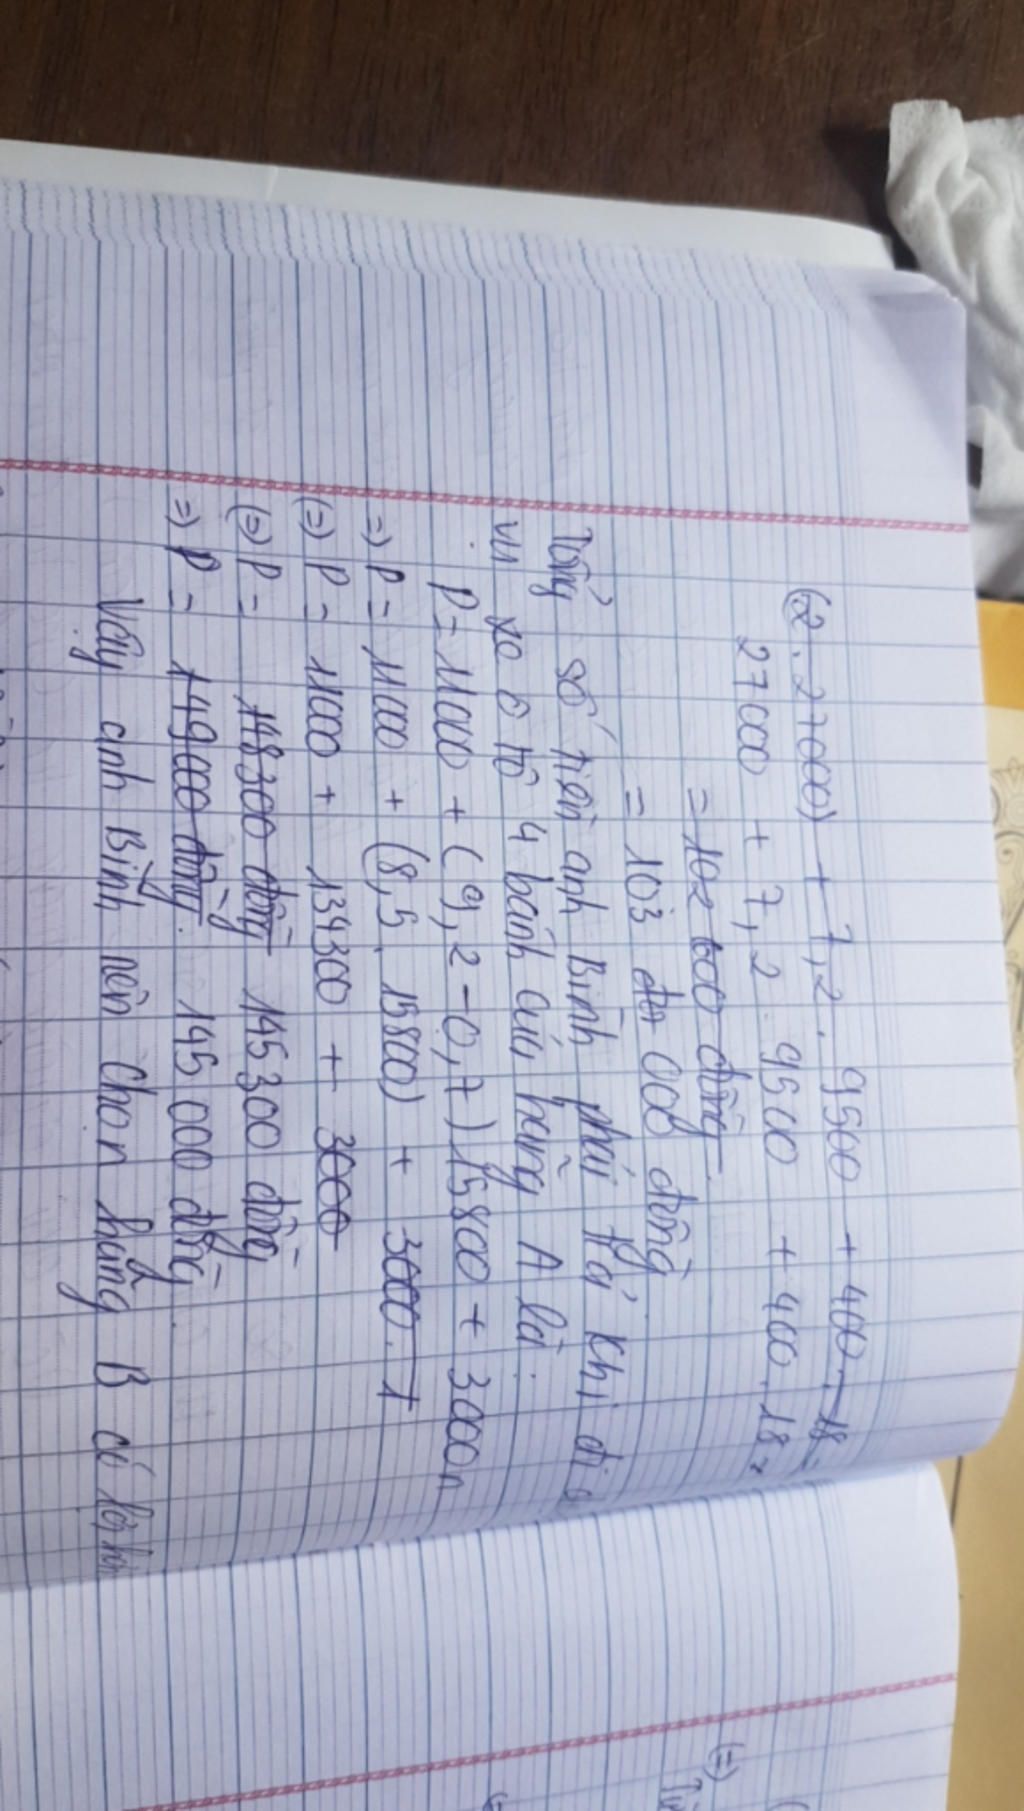 (2.27000) + 7,2. 9500 + 400.18 =
27000 + 7,2 9500 + 400.18 =
= 102 600 đồng
= 103 000 đồng
Tổng số tiền anh Bình phải trả khi đi
xe ô tô 4 bánh của hãng A là:
P = 11000 + (9,2-0,7)15800 + 3000n
=> P = 11000 + (8,5. 15800) + 3000.1
(=) P = 11000 + 134300 + 3000
(=) P = 148300 đồng 145300 đồng
=> P = 149000 đồng. 145 000 đồng.
Vậy anh Bình nên chọn hãng B có lợi hơn
(=)